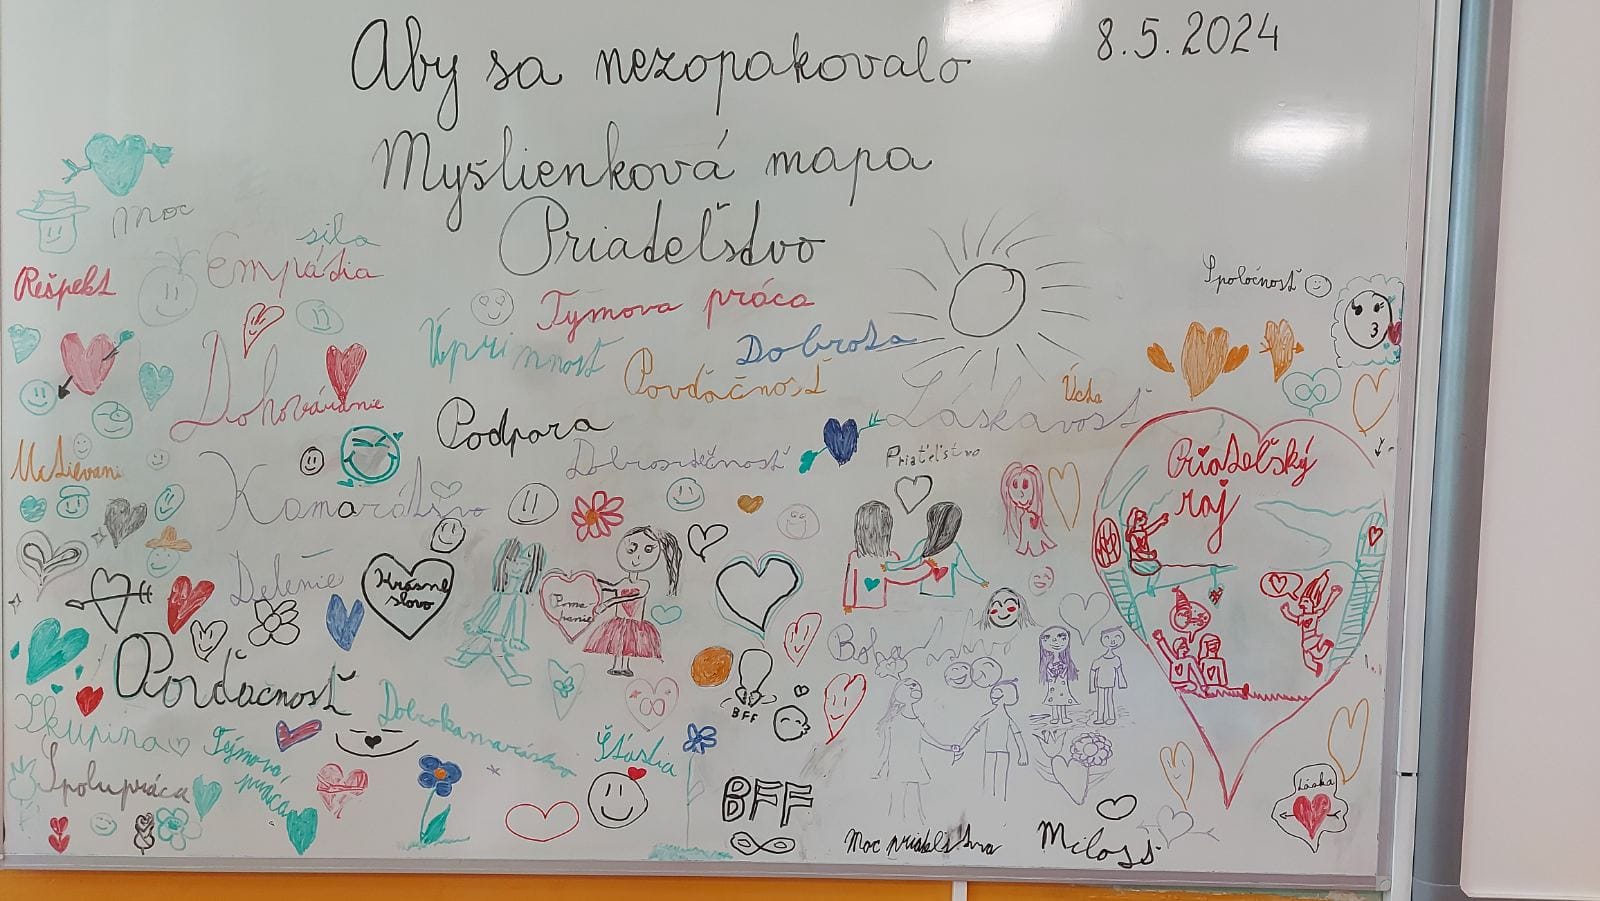 Aby sa nezopakovalo
8.5.2024
Myšlienková mapa
Priateľstvo
moc
sila
empátia
Rešpekt
Spoločnosť
Tymova práca
Úprimnosť
Dobrota
Povďačnosť
Úcta
Láskavosť
Dohováranie
Podpora
Priateľstvo
Dobrosrdečnosť
Priateľský
raj
Kamarátstvo
Delenie
Krásne
slovo
Poma
hanie
Poďačnosť
Skupina
Dobrokamarátstvo
Tejmová
práca
Šťastie
BFF
Spolupráca
BFF
Láska
Moc priateľstva